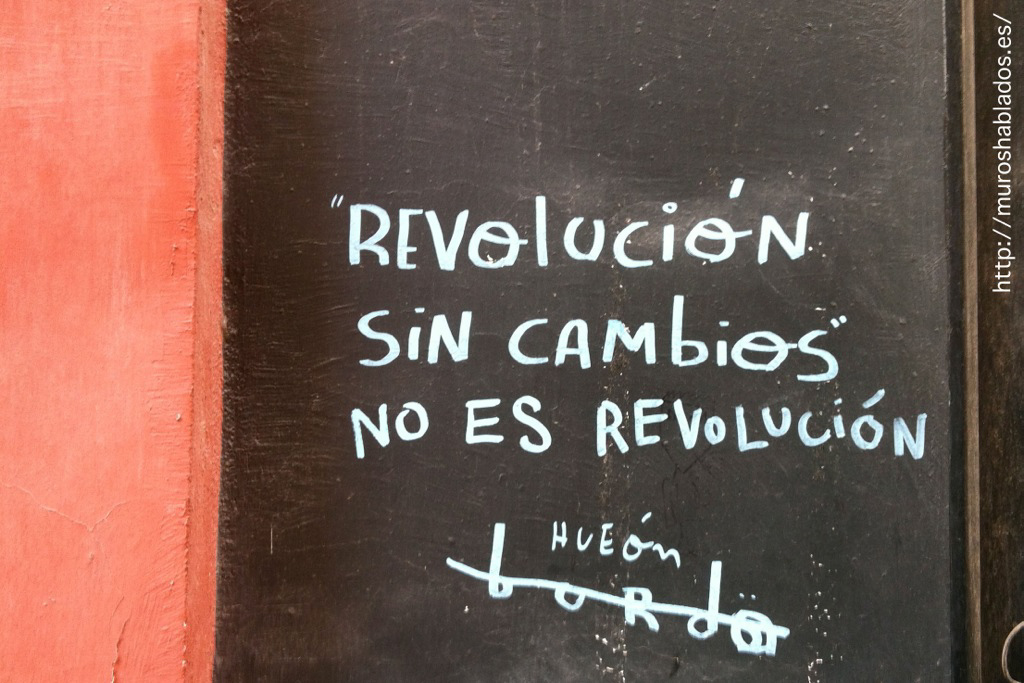 "REVOLUCIÓN
SIN CAMBIOS"
NO ES REVOLUCIÓN
HUEÓN
http://muroshablados.es/